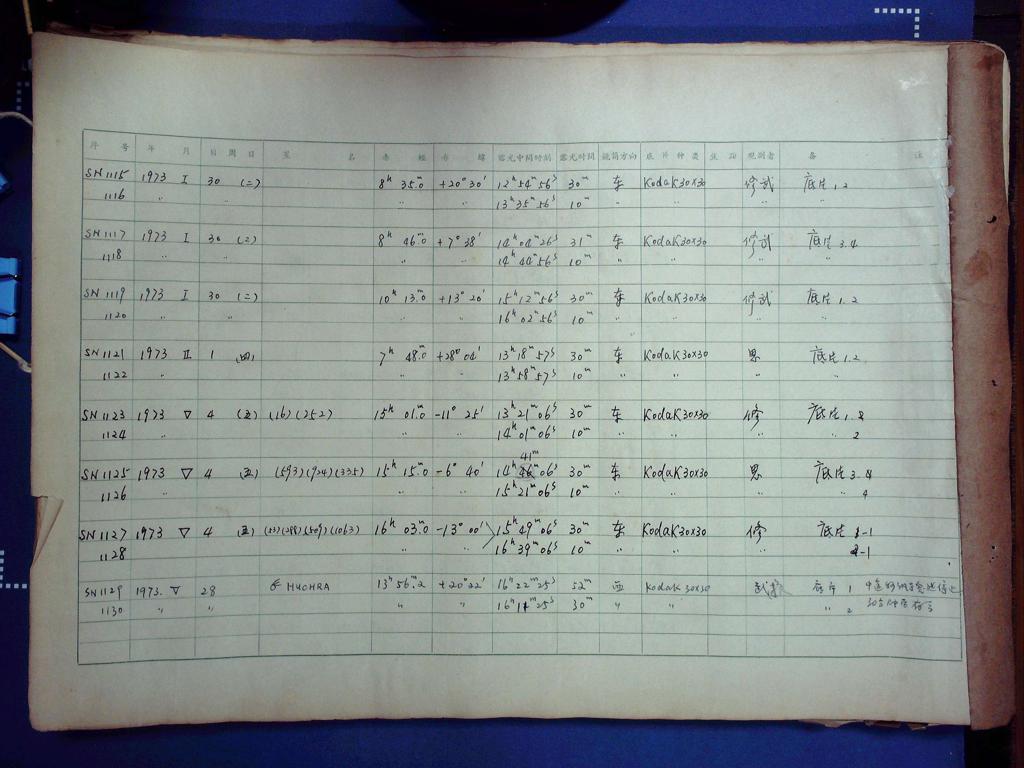 序 号 年 月 日 周 日 星 名 赤 经 赤 纬 露光中间时刻 露光时间 镜筒方向 底 片 种 类 观测者 备 注
SN 1115 1973 I 30 (二) 8ʰ 35.ᵐ0 +20° 30′ 12ʰ 54ᵐ 56ˢ 30ᵐ 东 Kodak 30×30 修武 底片 1.2
1116 〃 〃 〃 〃 13ʰ 35ᵐ 56ˢ 10ᵐ 〃 〃 〃 〃
SN 1117 1973 I 30 (二) 8ʰ 46.ᵐ0 +7° 38′ 14ʰ 04ᵐ 26ˢ 31ᵐ 东 Kodak 30×30 修武 底片 3.4
1118 〃 〃 〃 〃 14ʰ 44ᵐ 56ˢ 10ᵐ 〃 〃 〃 〃
SN 1119 1973 I 30 (二) 10ʰ 13.ᵐ0 +13° 20′ 15ʰ 12ᵐ 56ˢ 30ᵐ 东 Kodak 30×30 修武 底片 1.2
1120 〃 〃 〃 〃 16ʰ 02ᵐ 56ˢ 10ᵐ 〃 〃 〃 〃
SN 1121 1973 II 1 (四) 7ʰ 48.ᵐ0 +28° 04′ 13ʰ 18ᵐ 57ˢ 30ᵐ 东 Kodak 30×30 思 底片 1.2
1122 〃 〃 〃 〃 13ʰ 58ᵐ 57ˢ 10ᵐ 〃 〃 〃 〃
SN 1123 1973 V 4 (五) (16) (252) 15ʰ 01.ᵐ0 -11° 25′ 13ʰ 21ᵐ 06ˢ 30ᵐ 东 Kodak 30×30 修 底片 1
1124 〃 〃 14ʰ 01ᵐ 06ˢ 10ᵐ 〃 〃 〃 〃 2
41ᵐ
SN 1125 1973 V 4 (五) (593) (924) (335) 15ʰ 15.ᵐ0 -6° 40′ 14ʰ 06ˢ 30ᵐ 东 Kodak 30×30 思 底片 3
1126 〃 〃 〃 〃 15ʰ 21ᵐ 06ˢ 10ᵐ 〃 〃 〃 〃 4
SN 1127 1973 V 4 (五) (288) (509) (1063) 16ʰ 03.ᵐ0 -13° 00′ 15ʰ 49ᵐ 06ˢ 30ᵐ 东 Kodak 30×30 修 底片 -1
1128 〃 〃 16ʰ 39ᵐ 06ˢ 10ᵐ 〃 〃 〃 -1
SN 1129 1973. V 28 HUCHRA 13ʰ 56.ᵐ2 +20° 22′ 16ʰ 22ᵐ 25ˢ 52ᵐ 西 Kodak 30×30 武 底片 1
1130 〃 〃 〃 〃 〃 16ʰ 25ˢ 30ᵐ 〃 〃 〃 2